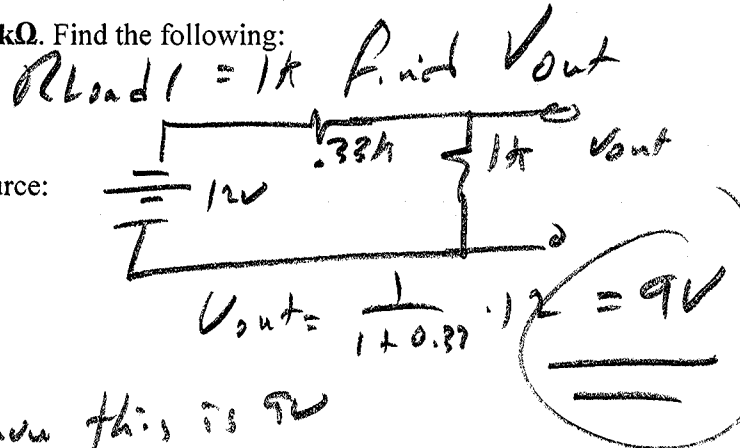 kΩ. Find the following:
RLoad1 = 1k Find Vout
.33k 1k Vout
urce:
12V
Vout = 1 / 1 + 0.33 · 12 = 9V
this is 9V